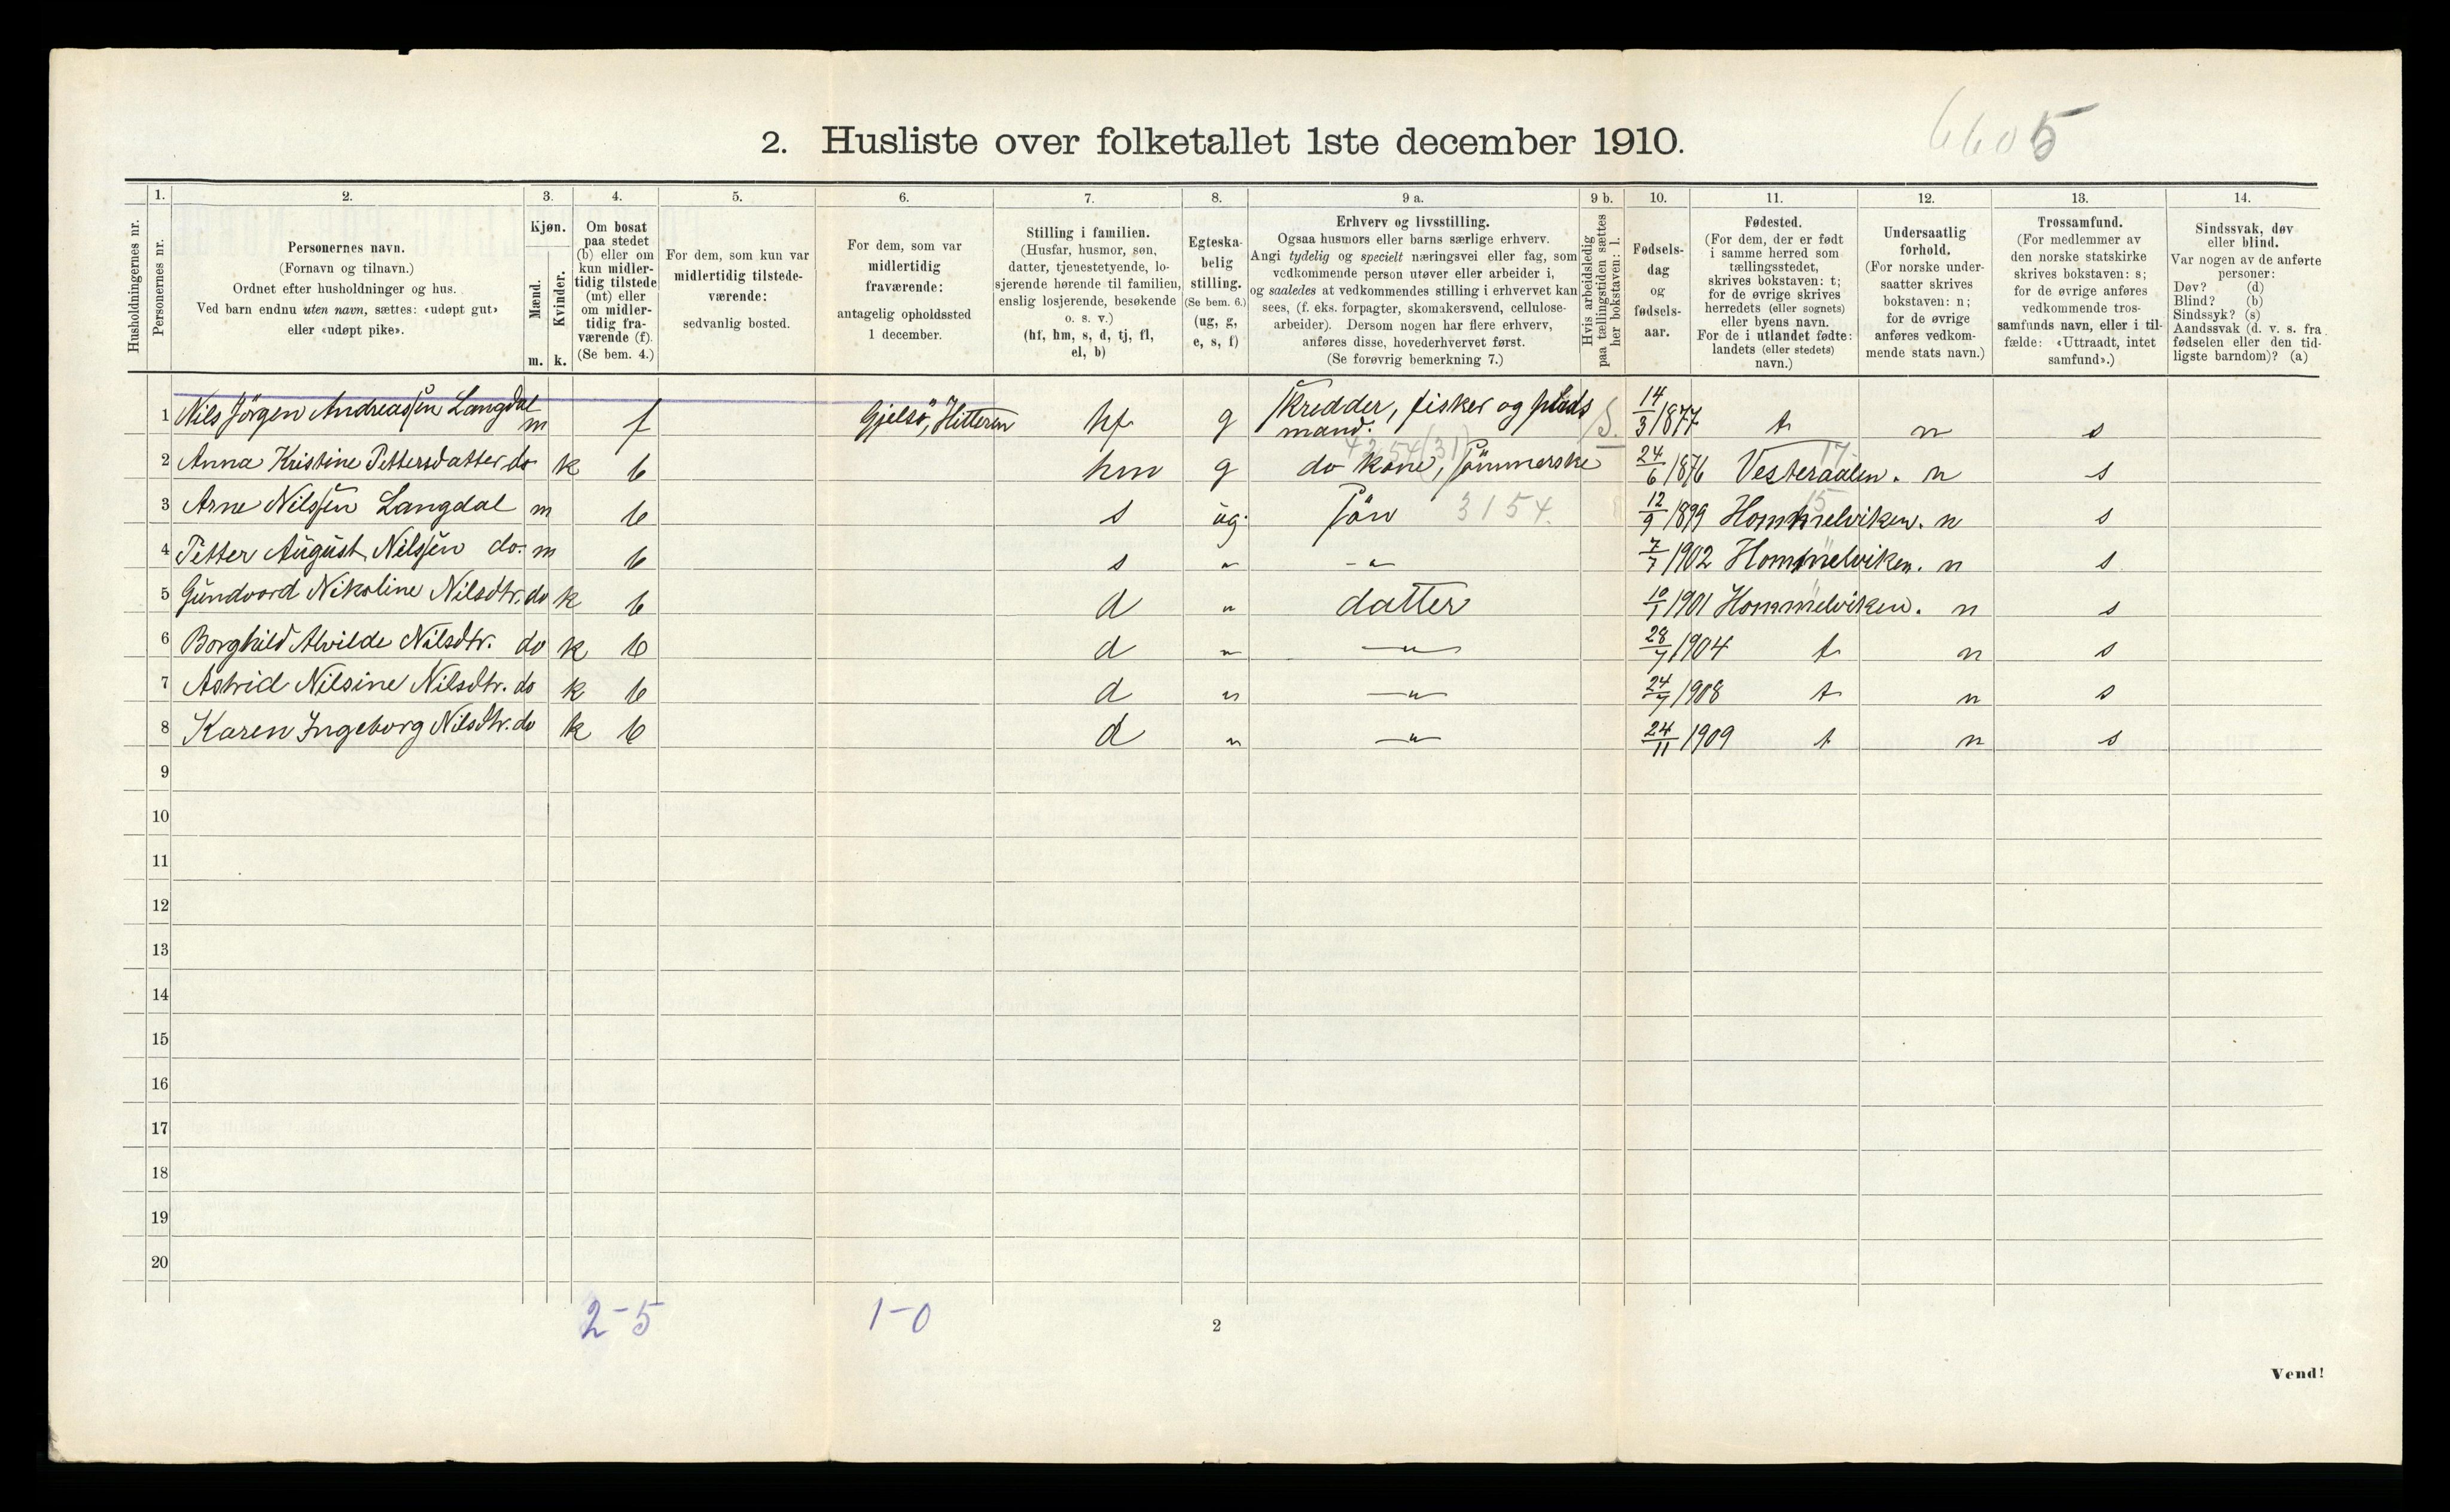 6605
2. Husliste over folketallet 1ste december 1910.
1. 2. 3. 4. 5. 6. 7. 8. 9 a. 9 b. 10. 11. 12. 13. 14.
Husholdningernes nr.
Personernes nr.
Personernes navn.
(Fornavn og tilnavn.)
Ordnet efter husholdninger og hus.
Ved barn endnu uten navn, sættes: «udøpt gut»
eller «udøpt pike».
Kjøn.
Mænd.
Kvinder.
m. k.
Om bosat
paa stedet
(b) eller om
kun midler-
tidig tilstede
(mt) eller
om midler-
tidig fra-
værende (f).
(Se bem. 4.)
For dem, som kun var
midlertidig tilstede-
værende:
sedvanlig bosted.
For dem, som var
midlertidig
fraværende:
antagelig opholdssted
1 december.
Stilling i familien.
(Husfar, husmor, søn,
datter, tjenestetyende, lo-
sjerende hørende til familien,
enslig losjerende, besøkende
o. s. v.)
(hf, hm, s, d, tj, fl,
el, b)
Egteska-
belig
stilling.
(Se bem. 6.)
(ug, g,
e, s, f)
Erhverv og livsstilling.
Ogsaa husmors eller barns særlige erhverv.
Angi tydelig og specielt næringsvei eller fag, som
vedkommende person utøver eller arbeider i,
og saaledes at vedkommendes stilling i erhvervet kan
sees, (f. eks. forpagter, skomakersvend, cellulose-
arbeider). Dersom nogen har flere erhverv,
anføres disse, hovederhvervet først.
(Se forøvrig bemerkning 7.)
Hvis arbeidsledig
paa tællingstiden sættes
her bokstaven: l.
Fødsels-
dag
og
fødsels-
aar.
Fødested.
(For dem, der er født
i samme herred som
tællingsstedet,
skrives bokstaven: t;
for de øvrige skrives
herredets (eller sognets)
eller byens navn.
For de i utlandet fødte:
landets (eller stedets)
navn.)
Undersaatlig
forhold.
(For norske under-
saatter skrives
bokstaven: n;
for de øvrige
anføres vedkom-
mende stats navn.)
Trossamfund.
(For medlemmer av
den norske statskirke
skrives bokstaven: s;
for de øvrige anføres
vedkommende tros-
samfunds navn, eller i til-
fælde: «Uttraadt, intet
samfund».)
Sindssvak, døv
eller blind.
Var nogen av de anførte
personer:
Døv? (d)
Blind? (b)
Sindssyk? (s)
Aandssvak (d. v. s. fra
fødselen eller den tid-
ligste barndom)? (a)
1 Nils Jörgen Andreassen Langdal m f Gjelsö, Hitteren hf g Skredder, fisker og plads
mand. 14/3 1877 t n s
4254(31) 17
2 Anna Kristine Pettersdatter do k b hm g do kone, Sömmerske 24/6 1876 Vesteraalen. n s
3 Arne Nilssen Langdal m b s ug. Sön 3154. 12/9 1899 Hommelviken. n s
4 Petter August Nilssen do. m b s " -"- 7/7 1902 Hommelviken. n s
5 Gundvord Nikoline Nilsdtr. do k b d " datter 10/1 1901 Hommelviken. n s
6 Borghild Alvilde Nilsdtr. do k b d " —"— 28/7 1904 t n s
7 Astrid Nilsine Nilsdtr. do k b d " —"— 24/7 1908 t n s
8 Karen Ingeborg Nilsdtr. do k b d " —"— 24/11 1909 t n s
9
10
11
12
13
14
15
16
17
18
19
20
2-5 1-0
2
Vend!